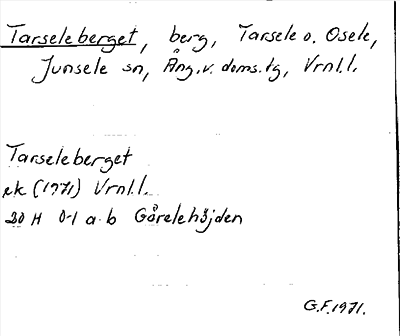 Tarseleberget, berg, Tarsele o. Osele,
Junsele sn, Ång.v. doms.tg, Vrnl.l.
Tarseleberget
ek (1971) Vrnl.l.
20 H 0-1 a-b Gårelehöjden
G.F.1971.